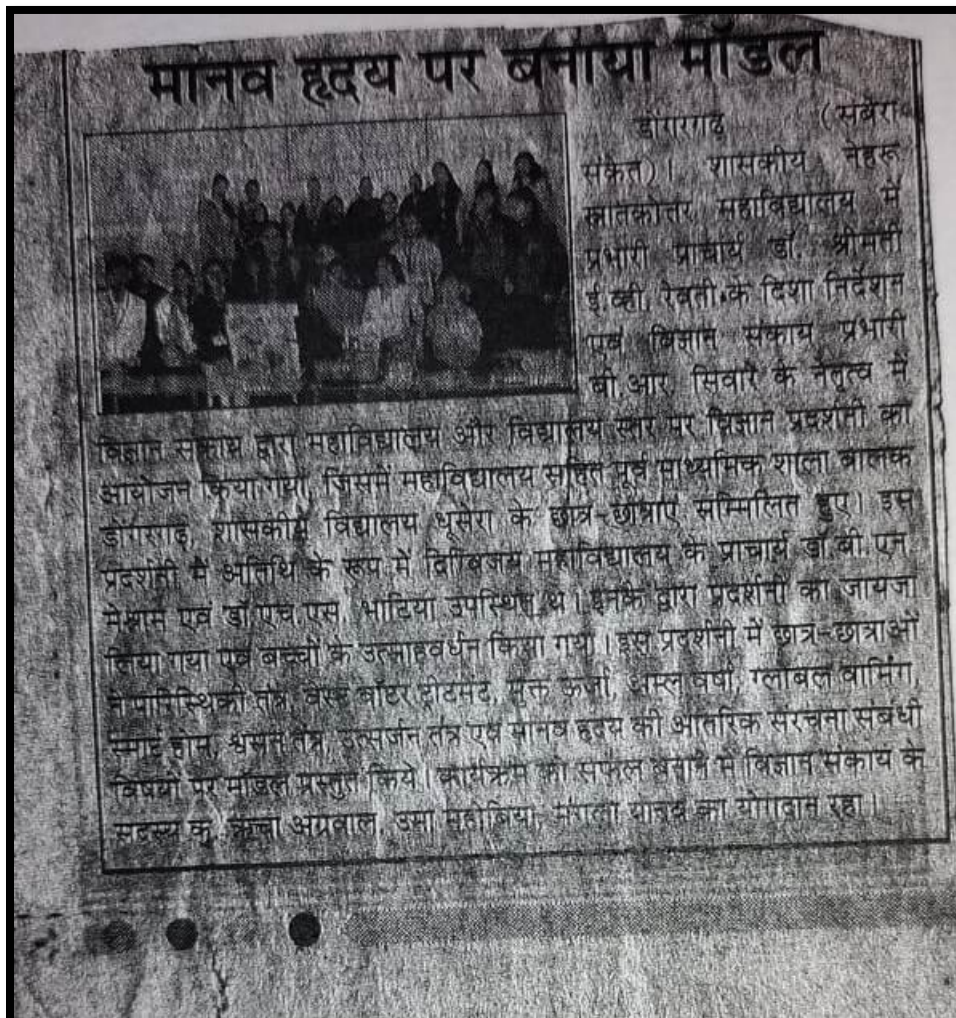 मानव हृदय पर बनाया मॉडल
डोंगरगढ़ (सबेरा
संकेत)। शासकीय नेहरू
स्नातकोत्तर महाविद्यालय में
प्रभारी प्राचार्य डॉ. श्रीमती
ई.व्ही. रेवती के दिशा निर्देशन
एवं विज्ञान संकाय प्रभारी
बी.आर. सिवारे के नेतृत्व में
विज्ञान संकाय द्वारा महाविद्यालय और विद्यालय स्तर पर विज्ञान प्रदर्शनी का
आयोजन किया गया, जिसमें महाविद्यालय सहित पूर्व माध्यमिक शाला बालक
डोंगरगढ़, शासकीय विद्यालय धूसेरा के छात्र-छात्राएं सम्मिलित हुए। इस
प्रदर्शनी में अतिथि के रूप में दिग्विजय महाविद्यालय के प्राचार्य डॉ.बी.एन.
मेश्राम एवं डॉ.एच.एस. भाटिया उपस्थित थे। इनके द्वारा प्रदर्शनी का जायजा
लिया गया एवं बच्चों के उत्साहवर्धन किया गया। इस प्रदर्शनी में छात्र-छात्राओं
ने पारिस्थिकी तंत्र, वेस्ट वॉटर ट्रीटमेंट, मुक्त ऊर्जा, अम्ल वर्षा, ग्लोबल वार्मिंग,
स्मार्ट होम, श्वसन तंत्र, उत्सर्जन तंत्र एवं मानव हृदय की आंतरिक संरचना संबंधी
विषयों पर मॉडल प्रस्तुत किये। कार्यक्रम को सफल बनाने में विज्ञान संकाय के
सदस्य कु. ऋचा अग्रवाल, उमा महोबिया, मंगला यादव का योगदान रहा।